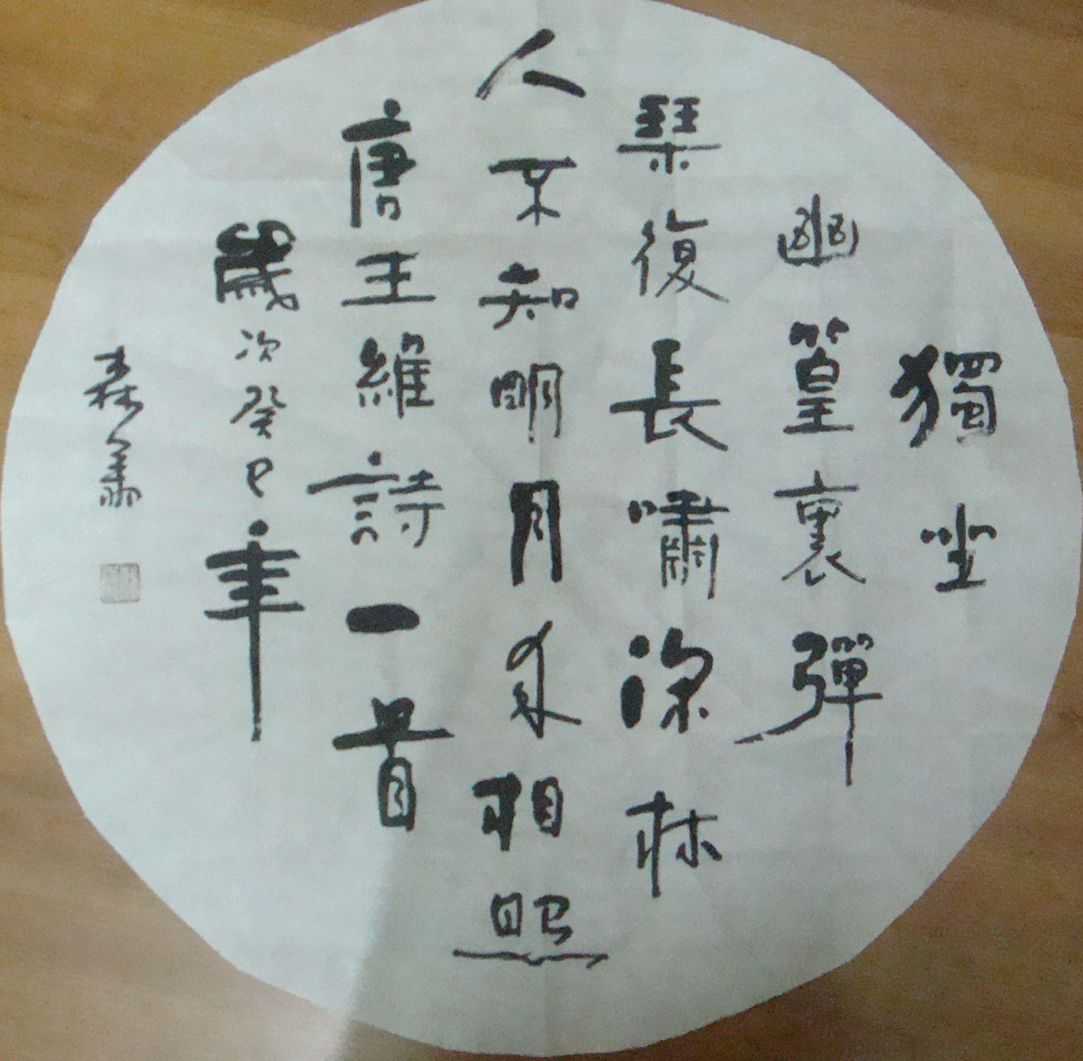 獨坐
幽篁裏彈
琴復長嘯深林
人不知明月來相照
唐王維詩一首
歲次癸巳年
森